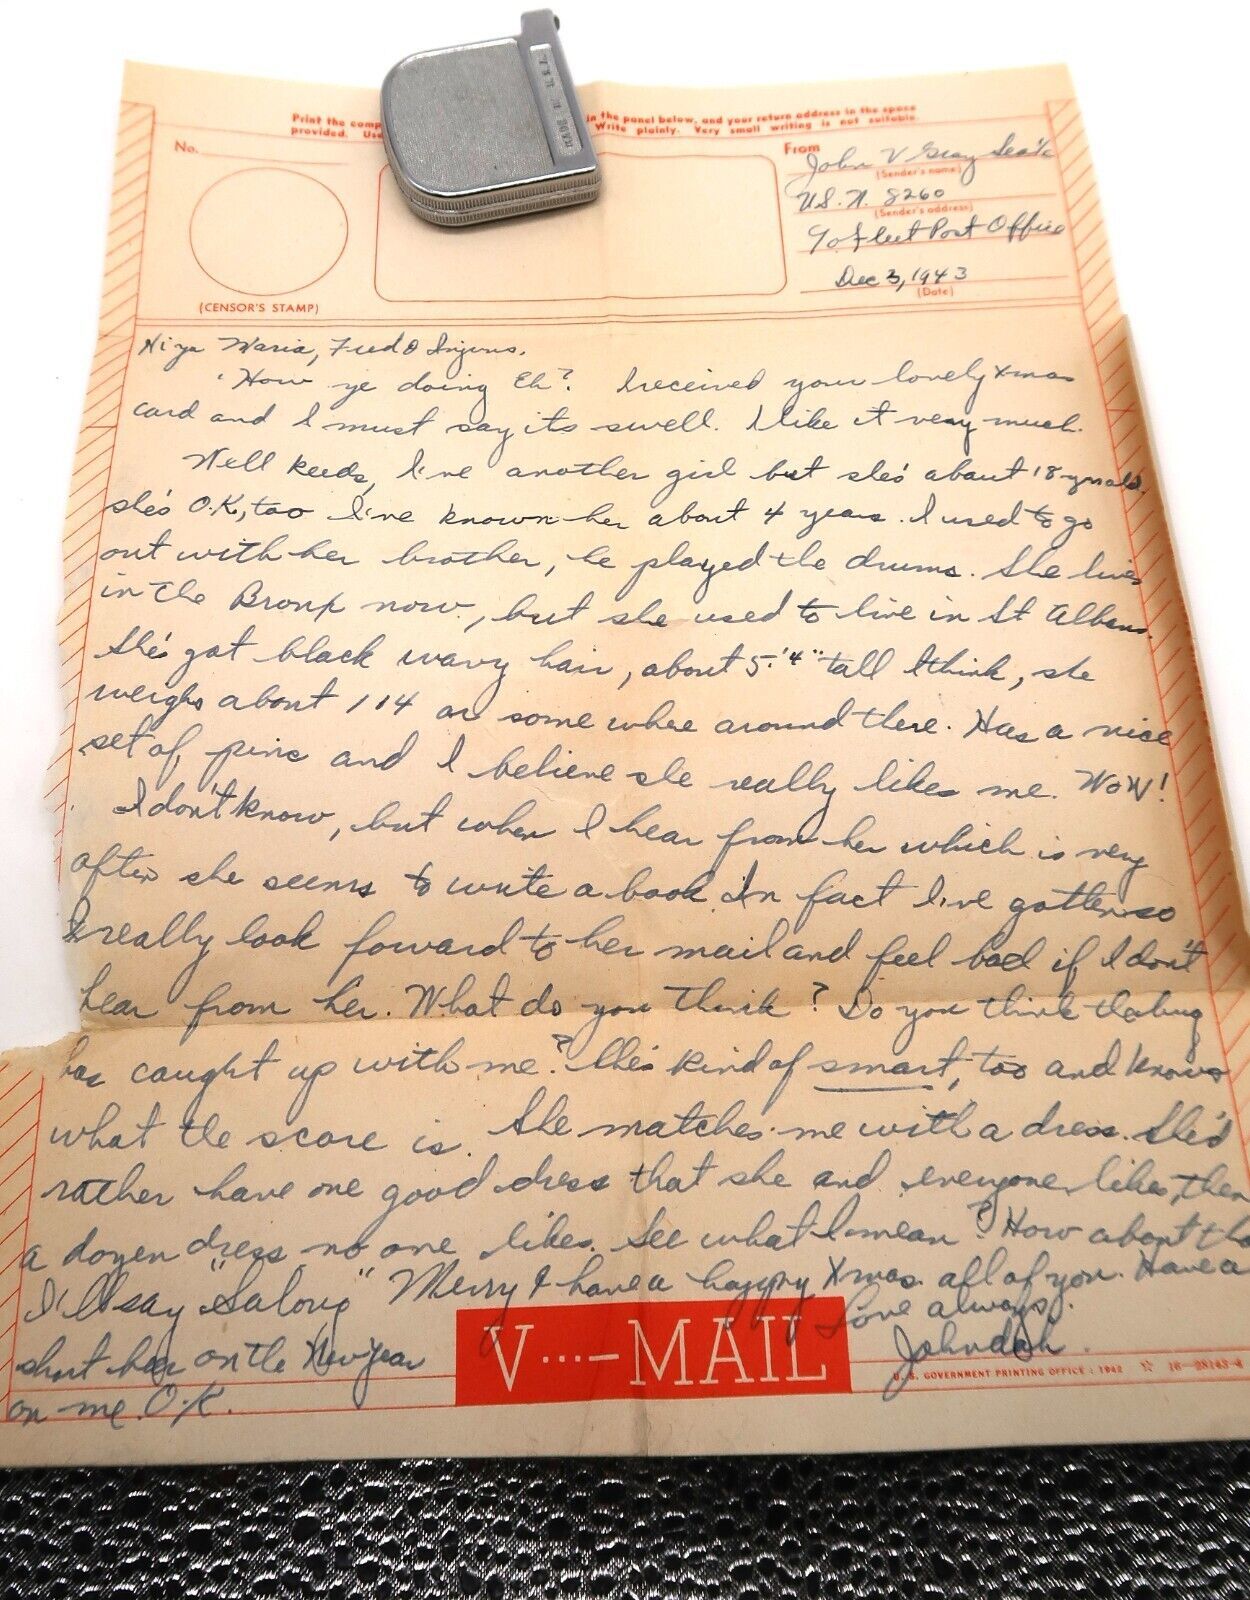 Print the comp in the panel below, and your return address in the space
provided. Use Write plainly. Very small writing is not suitable.
No.
(CENSOR'S STAMP)
From
John V Gray Sea 1/c
(Sender's name)
U.S.N. 8260
(Sender's address)
c/o Fleet Post Office
Dec 3, 1943
(Date)
Hi ya Maria, Fred &
"How ye doing Eh? I received your lovely Xmas
card and I must say its swell. I like it very much.
Well I've another girl but she's about 18 yrs old.
she's O.K, too I've known her about 4 years. I used to go
out with her brother, he played the drums. She lives
in the Bronx now, but she used to live in St Albans.
She's got black wavy hair, about 5'4" tall I think, she
weighs about 114 or some where around there. Has a nice
set of pins and I believe she really likes me. WOW!
I don't know, but when I hear from her which is very
often she seems to write a book. In fact I've gotten so
I really look forward to her mail and feel bad if I don't
hear from her. What do you think? Do you think the bug
has caught up with me? She's kind of smart, too and knows
what the score is. She matches me with a dress. She'd
rather have one good dress that she and everyone likes, then
a dozen dress no one likes. See what I mean? How about tha
I'll say "Salong" Merry & have a happy Xmas. all of you. Have a
short beer on the New Year
on me. O.K.
Love always.
V...-MAIL
U.S. GOVERNMENT PRINTING OFFICE : 1942 ☆ 16-28143-4